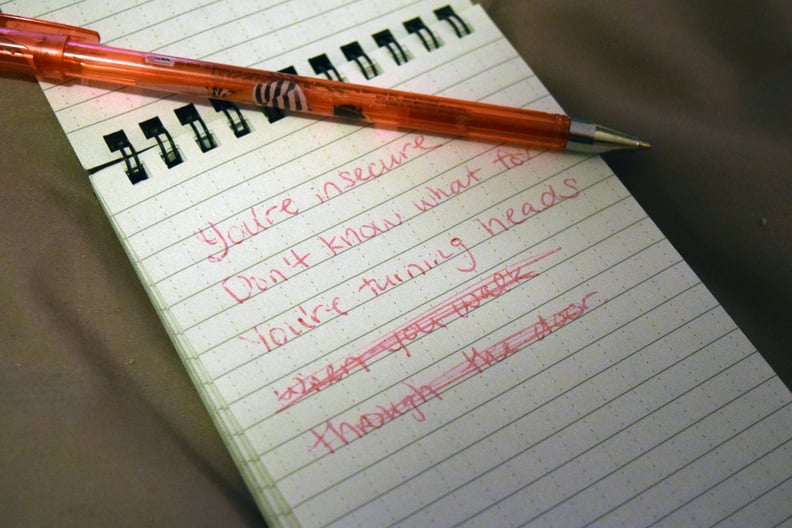 You're insecure
Don't know what for
You're turning heads
when you walk
through the door